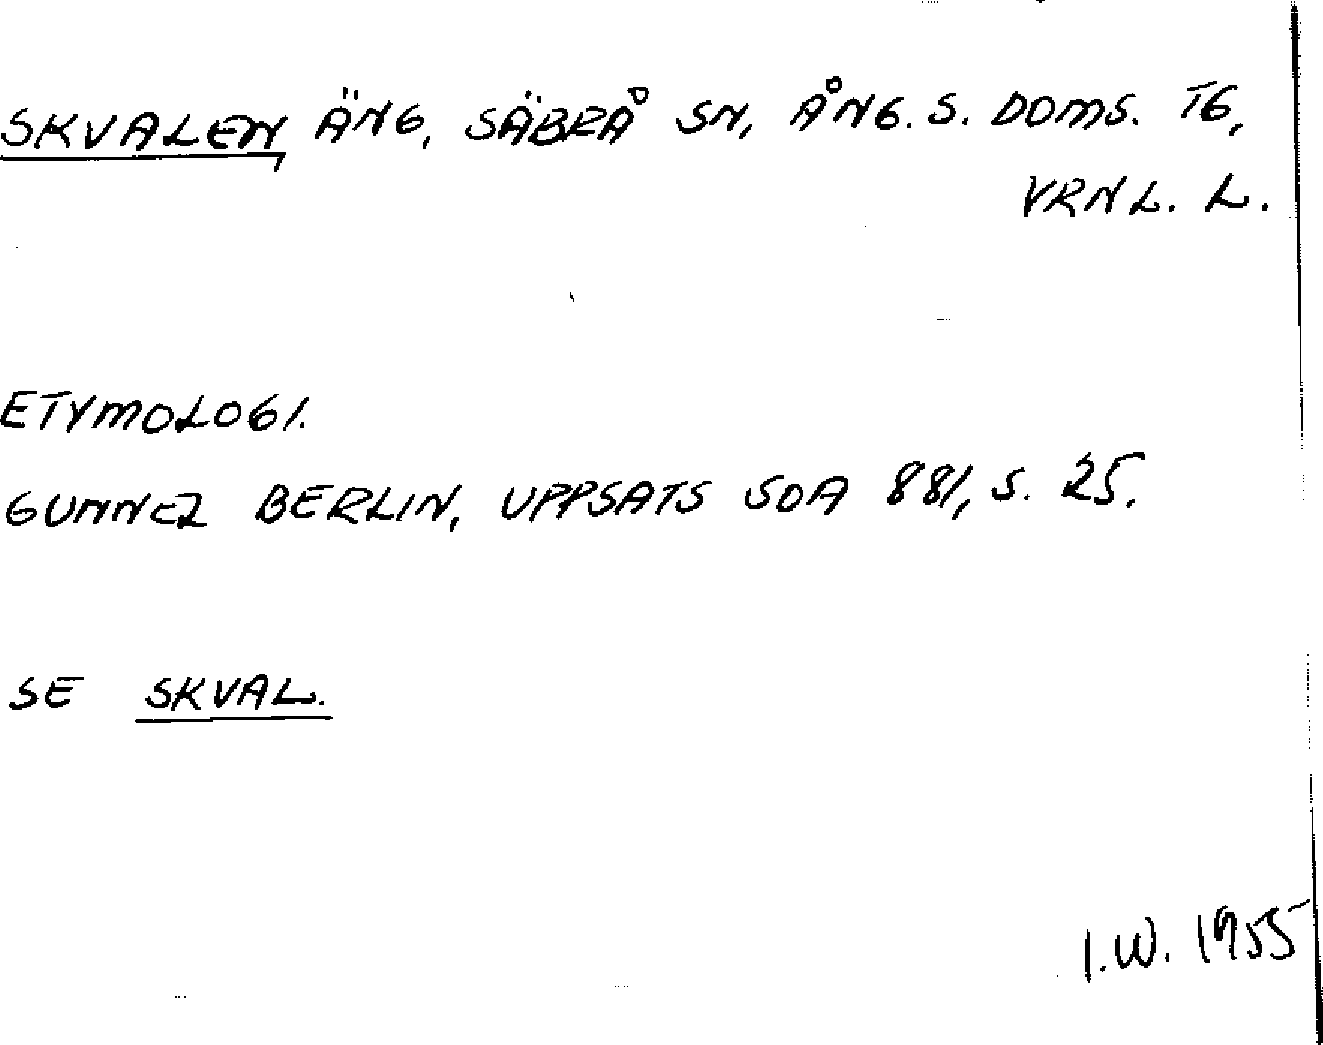 SKVALEN, ÄNG, SÄBRÅ SN, ÅNG. S. DOMS. TG,
VRNL. L.
ETYMOLOGI.
GUNNEL BERLIN, UPPSATS SOA 881, S. 25.
SE SKVAL.
I.W. 1955